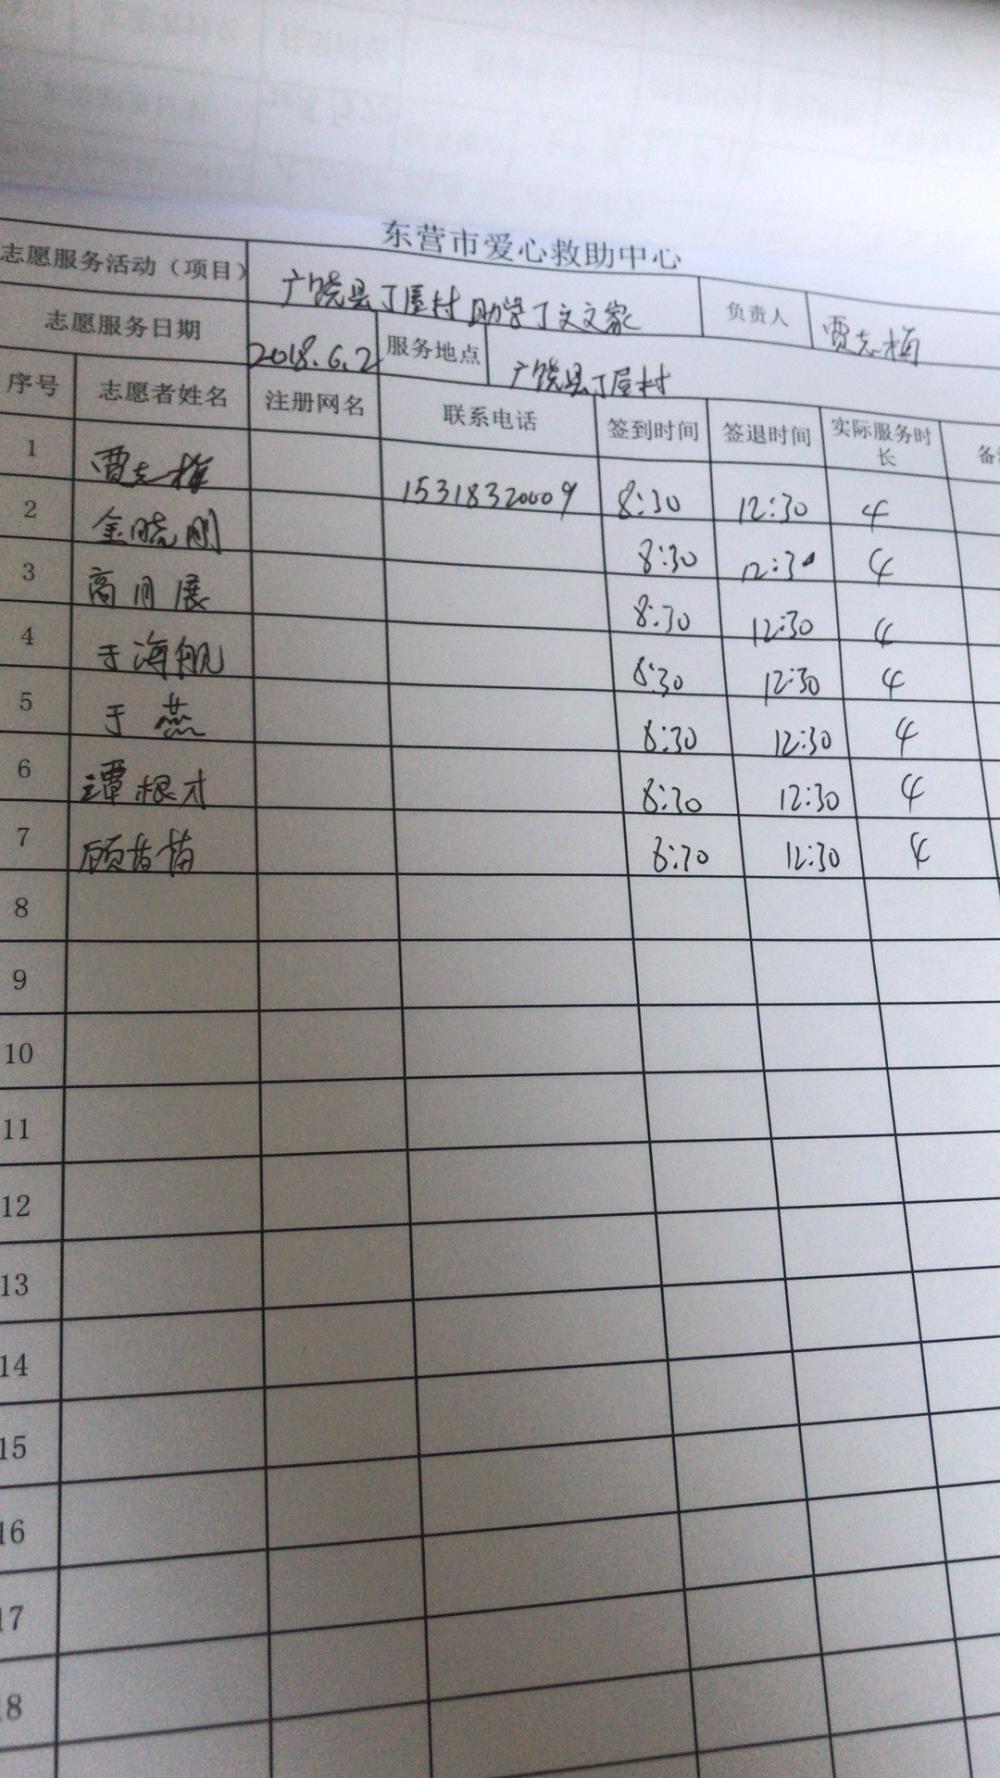 东营市爱心救助中心
志愿服务活动（项目） 广饶县丁屋村助学丁文文家 负责人 贾志梅
志愿服务日期 2018.6.2 服务地点 广饶县丁屋村
序号 志愿者姓名 注册网名 联系电话 签到时间 签退时间 实际服务时长 备
1 贾志梅 15318320009 8:30 12:30 4
2 金晓刚 8:30 12:30 4
3 商月展 8:30 12:30 4
4 于海航 8:30 12:30 4
5 于燕 8:30 12:30 4
6 谭根才 8:30 12:30 4
7 顾苗苗 8:30 12:30 4
8
9
10
11
12
13
14
15
16
17
18